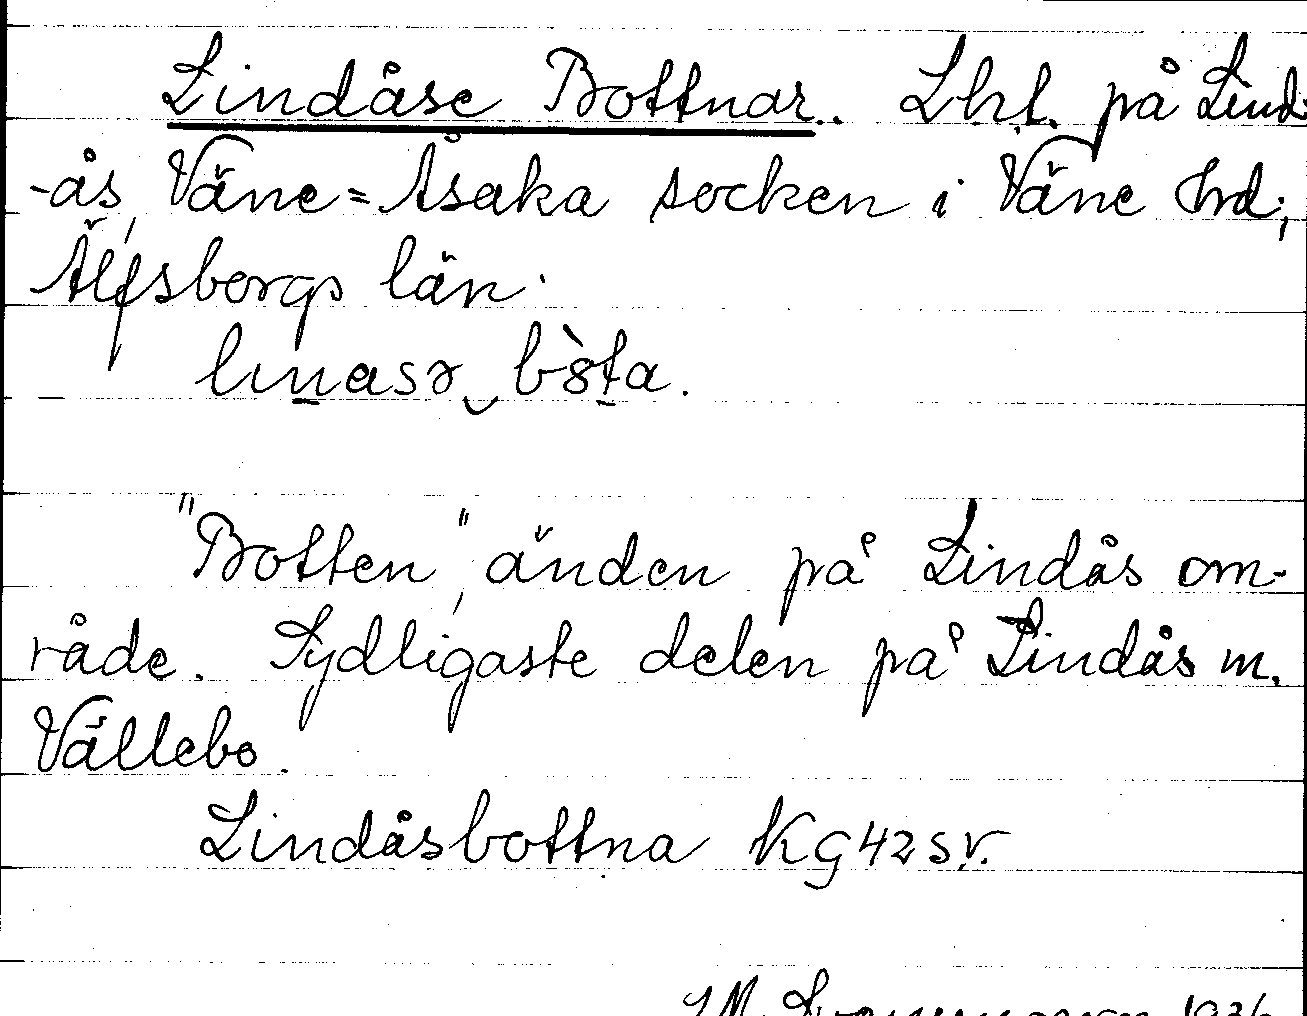 Lindåse Bottnar.. Lht. på Lind-
-ås, Väne=Åsaka socken i Väne hrd;
Älfsborgs län.
lınasɘ bòta.
"Botten", änden på Lindås om-
råde. Sydligaste delen på Lindås m.
Vällebo.
Lindåsbottna KG 42 sv.
1936